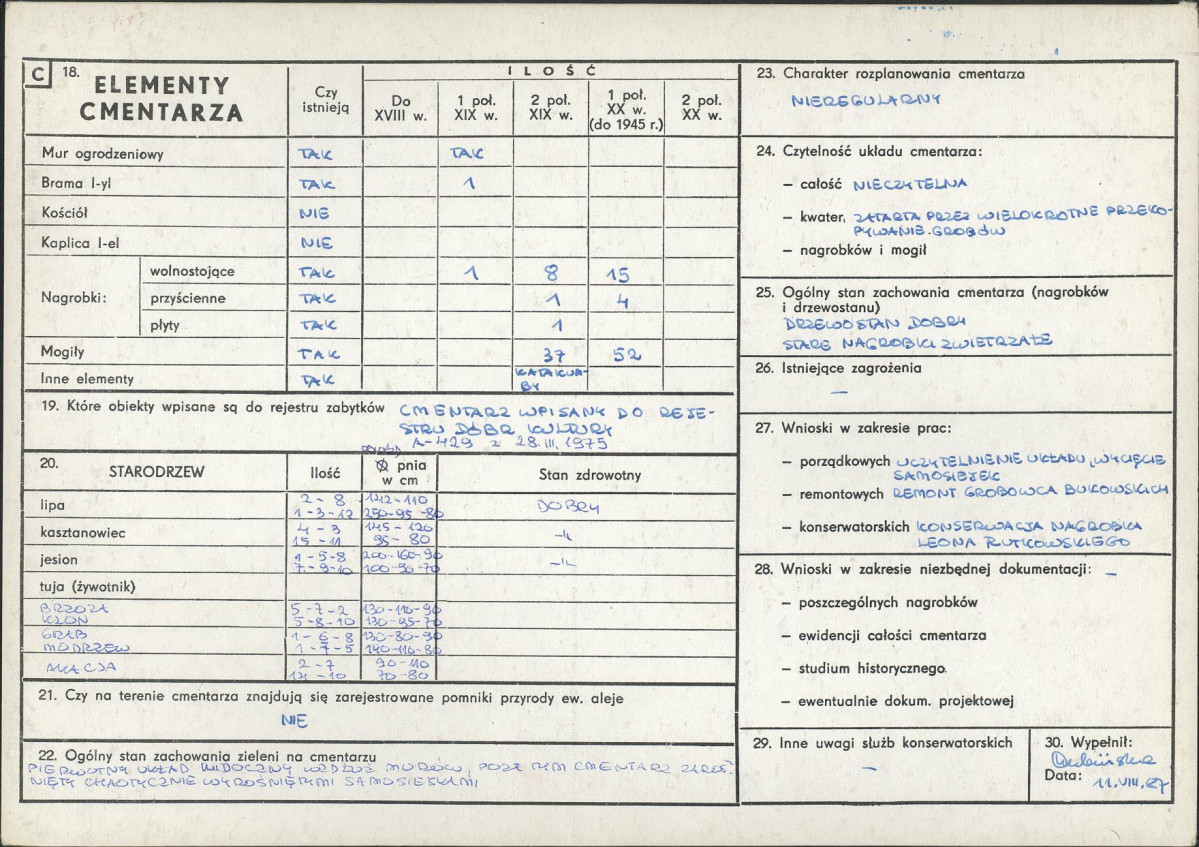 C 18. ELEMENTY CMENTARZA
Czy istnieją
ILOŚĆ
Do XVIII w.
1 poł. XIX w.
2 poł. XIX w.
1 poł. XX w. (do 1945 r.)
2 poł. XX w.
Mur ogrodzeniowy TAK TAK
Brama I-yl TAK 1
Kościół NIE
Kaplica I-el NIE
Nagrobki:
wolnostojące TAK 1 8 15
przyścienne TAK 1 4
płyty TAK 1
Mogiły TAK 37 52
Inne elementy TAK KATAKUM-
BY
19. Które obiekty wpisane są do rejestru zabytków CMENTARZ WPISANY DO REJE-
STRU DÓBR KULTURY
A-429 z 28.III.1975
20. STARODRZEW
Ilość
pnia
w cm
Stan zdrowotny
lipa 2-8 142-110 DOBRY
1-3-12 250-95-80
kasztanowiec 4-3 145-120 -"-
15-11 95-80
jesion 1-5-8 200-160-90 -"-
7-9-10 100-90-70
tuja (żywotnik)
BRZOZA 5-7-2 130-116-90
KLON 5-8-10 130-95-70
GRAB 1-6-8 130-80-90
MODRZEW 1-7-5 140-116-80
AKACJA 2-7 90-110
14-10 70-80
21. Czy na terenie cmentarza znajdują się zarejestrowane pomniki przyrody ew. aleje
NIE
22. Ogólny stan zachowania zieleni na cmentarzu
PIERWOTNY UKŁAD WIDOCZNY WZDŁUŻ MURÓW, POZA TYM CMENTARZ ZAROŚ-
NIĘTY CHAOTYCZNIE WYROŚNIĘTYMI SAMOSIEJKAMI
23. Charakter rozplanowania cmentarza
NIEREGULARNY
24. Czytelność układu cmentarza:
– całość NIECZYTELNA
– kwater, ZATARTA PRZEZ WIELOKROTNE PRZEKO-
PYWANIE GROBÓW
– nagrobków i mogił
25. Ogólny stan zachowania cmentarza (nagrobków
i drzewostanu)
DRZEWOSTAN DOBRY
STARE NAGROBKI ZWIETRZAŁE
26. Istniejące zagrożenia
—
27. Wnioski w zakresie prac:
– porządkowych UCZYTELNIENIE UKŁADU, WYCIĘCIE
SAMOSIEJEK
– remontowych REMONT GROBOWCA BUKOWSKICH
– konserwatorskich KONSERWACJA NAGROBKA
LEONA RUTKOWSKIEGO
28. Wnioski w zakresie niezbędnej dokumentacji: —
– poszczególnych nagrobków
– ewidencji całości cmentarza
– studium historycznego
– ewentualnie dokum. projektowej
29. Inne uwagi służb konserwatorskich
—
30. Wypełnił:
Data: 11.VIII.87